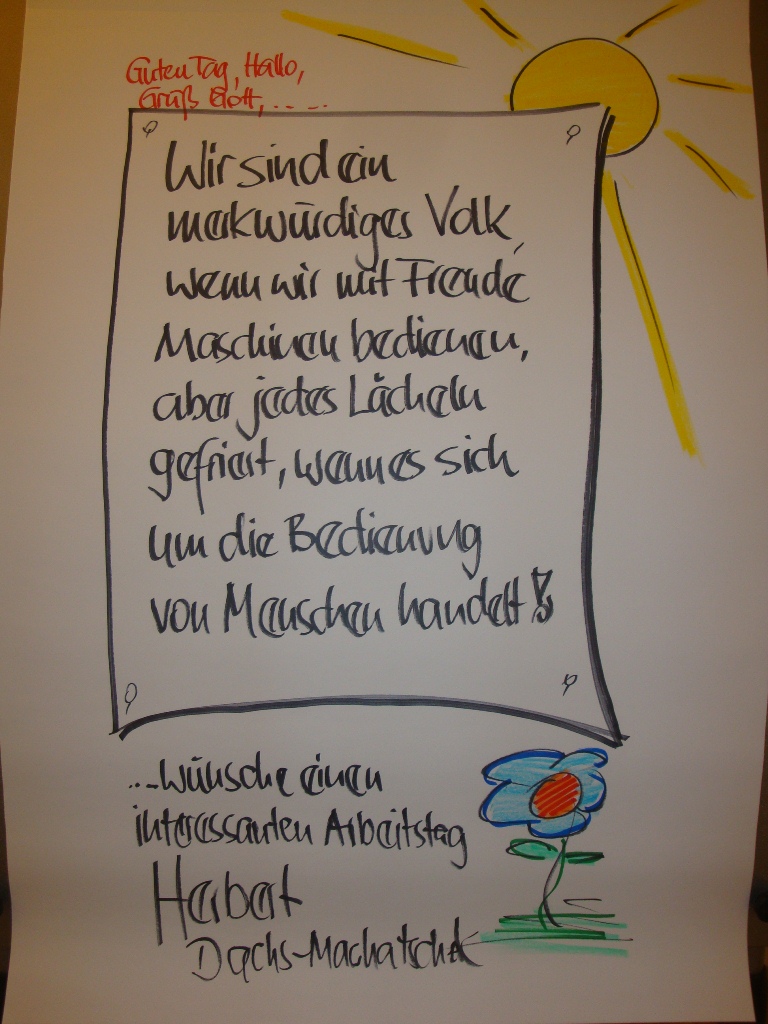 Guten Tag, Hallo,
Grüß Gott, .....
Wir sind ein
merkwürdiges Volk,
wenn wir mit Freude
Maschinen bedienen,
aber jedes Lächeln
gefriert, wenn es sich
um die Bedienung
von Menschen handelt!
...wünsche einen
interessanten Arbeitstag
Herbert
Dachs-Machatschek